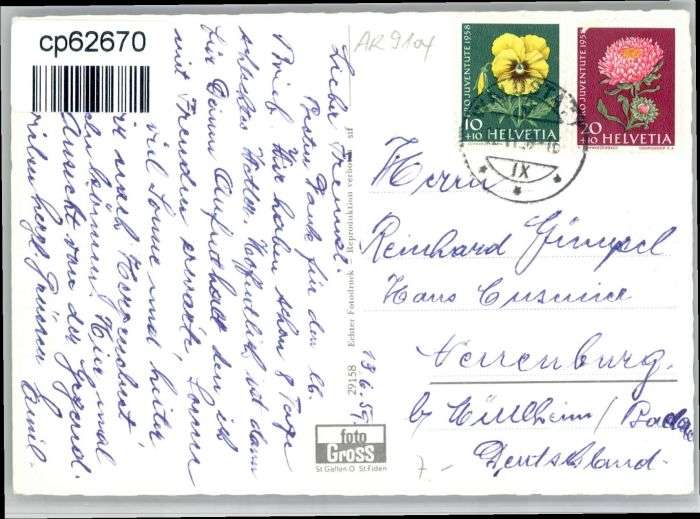 cp62670
AR 9104
PRO JUVENTUTE 1958
10
+10 HELVETIA
PRO JUVENTUTE 1958
20
+10 HELVETIA
IX
Herrn
Reinhard Gimpel
Hans
Neuenburg
b/ Müllheim/Baden
Deutschland
7.-
13.6.59.
Lieber Freund!
Besten Dank für den lb.
Brief. Wir haben schon 8 Tage
schlechtes Wetter. Hoffentlich ist dann
für Deinen Aufenthalt den ich
mit Freuden erwarte, Sonne
viel Sonne und heiter
Hier mal
Ansicht von der Gegend.
herzl. Grüssen Emil-
29158 Echter Fotodruck Reproduktion verboten stf
foto
GROSS
St Gallen O St. Fiden